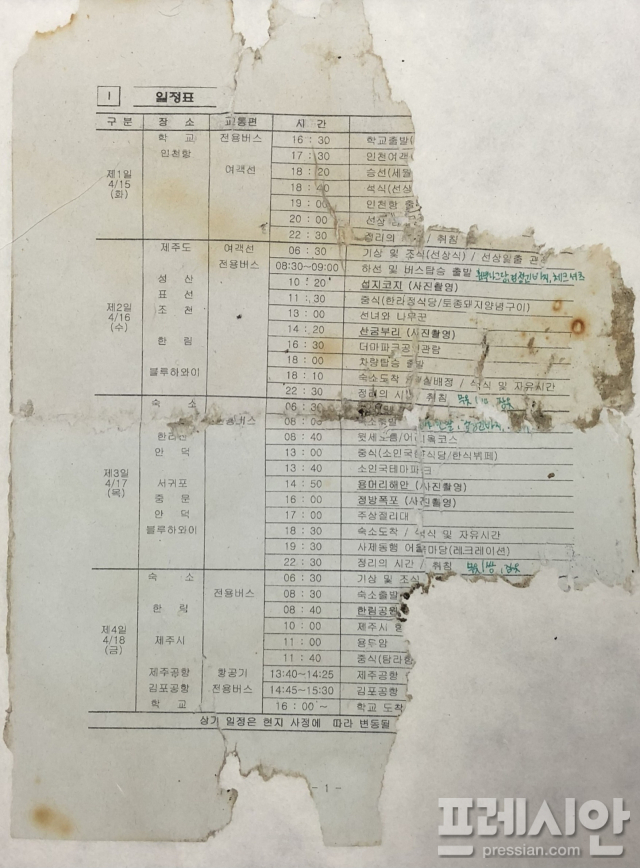 I 일정표
구분 장소 교통편 시간
제1일 4/15 (화) 학교 전용버스 16 : 30 학교출발(
인천항 17 : 30 인천여객
여객선 18 : 20 승선(세월
18 : 40 석식(선상
19 : 00 인천항 출
20 : 00 선상
22 : 30 정리의 / 취침
제2일 4/16 (수) 제주도 여객선 06 : 30 기상 및 조식(선상식) / 선상일출 관
전용버스 08:30~09:00 하선 및 버스탑승 출발
성산 10 : 20 섭지코지 (사진촬영)
표선 11 : 30 중식(한라정식당/토종돼지양념구이)
조천 13 : 00 선녀와 나무꾼
14 : 20 산굼부리 (사진촬영)
한림 16 : 30 더마파크공연관람
18 : 00 차량탑승 출발
블루하와이 18 : 10 숙소도착 실배정 / 석식 및 자유시간
22 : 30 정리의 시간 취침
제3일 4/17 (목) 숙소 06 : 30
08 : 00
한라산 08 : 40 윗세오름/어리목코스
안덕 13 : 00 중식(소인국 식당/한식뷔페)
13 : 40 소인국테마파크
서귀포 14 : 50 용머리해안 (사진촬영)
중문 16 : 00 정방폭포 (사진촬영)
안덕 17 : 00 주상절리대
블루하와이 18 : 30 숙소도착 / 석식 및 자유시간
19 : 30 사제동행 어울마당(레크레이션)
22 : 30 정리의 시간 / 취침
제4일 4/18 (금) 숙소 06 : 30 기상 및 조식
전용버스 08 : 30 숙소출발
한림 08 : 40 한림공원
10 : 00 제주시
제주시 11 : 00 용두암
11 : 40 중식(탐라
제주공항 항공기 13:40~14:25 제주공항
김포공항 전용버스 14:45~15:30 김포공항
학교 16 : 00 ~ 학교 도착
상기 일정은 현지 사정에 따라 변동될
- 1 -
프레시안
pressian.com